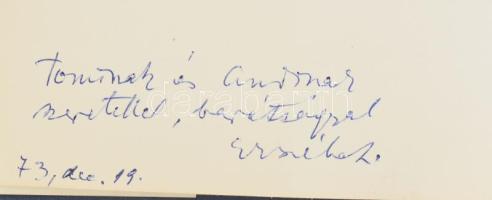 Tominak és Andinak
szeretettel, barátsággal
Erzsébet.
73, dec. 19.